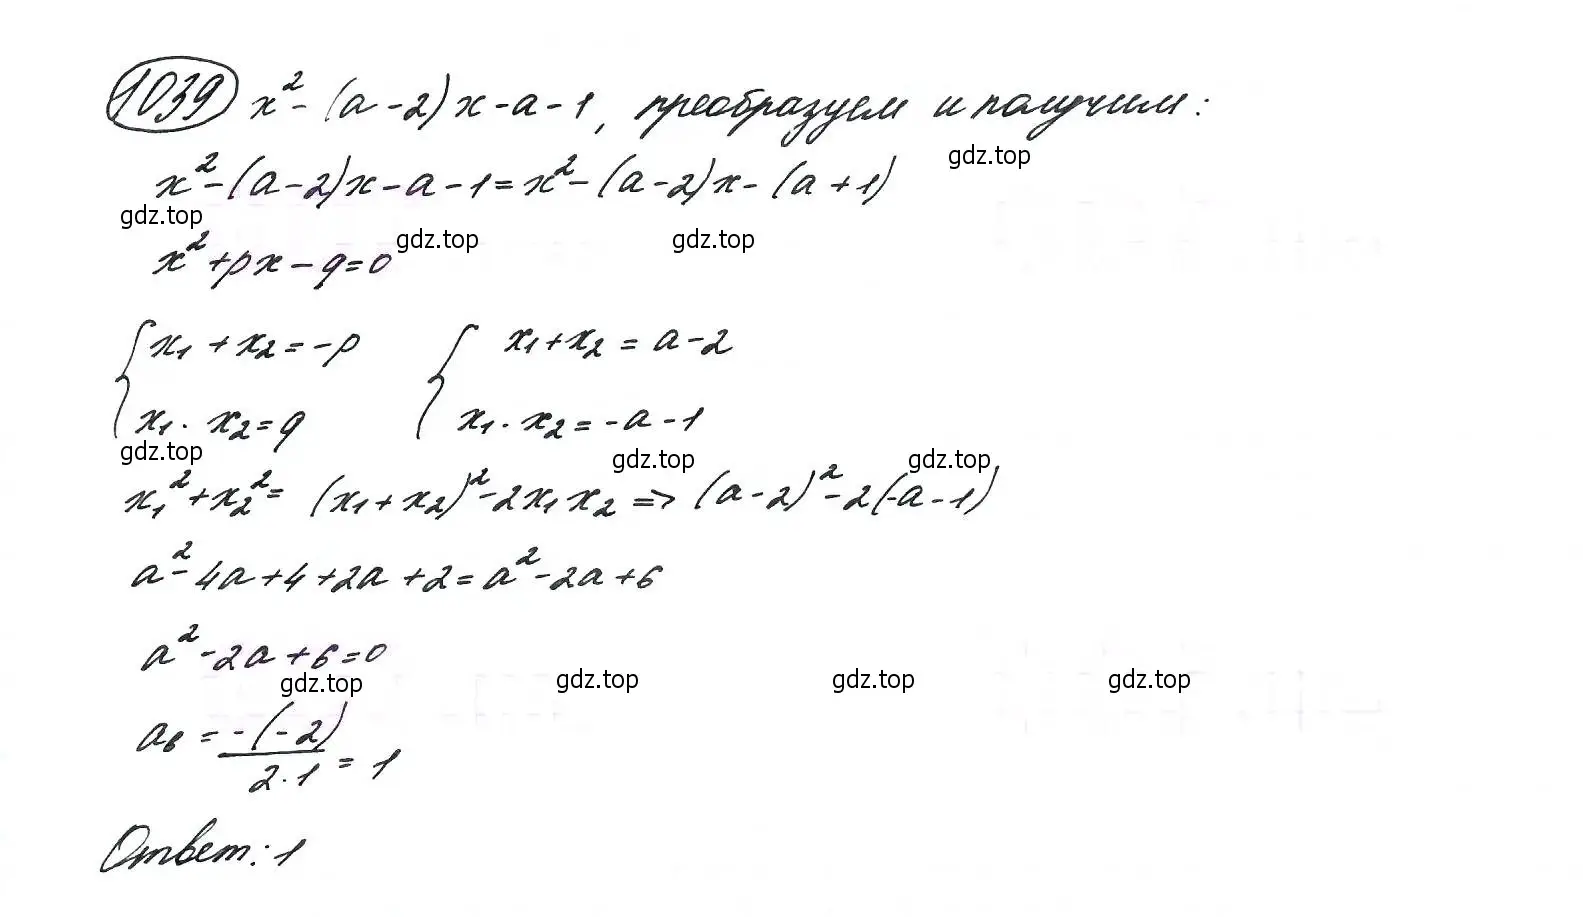 1039 x² - (a - 2)x - a - 1, преобразуем и получим:
gdz.top
x² - (a - 2)x - a - 1 = x² - (a - 2)x - (a + 1)
gdz.top gdz.top gdz.top
x² + px - q = 0
{ x₁ + x₂ = -p { x₁ + x₂ = a - 2
x₁ · x₂ = q x₁ · x₂ = -a - 1
gdz.top gdz.top gdz.top
x₁² + x₂² = (x₁ + x₂)² - 2x₁x₂ => (a - 2)² - 2(-a - 1)
a² - 4a + 4 + 2a + 2 = a² - 2a + 6
a² - 2a + 6 = 0
gdz.top gdz.top gdz.top gdz.top
aв = -(-2) / 2·1 = 1
Ответ: 1